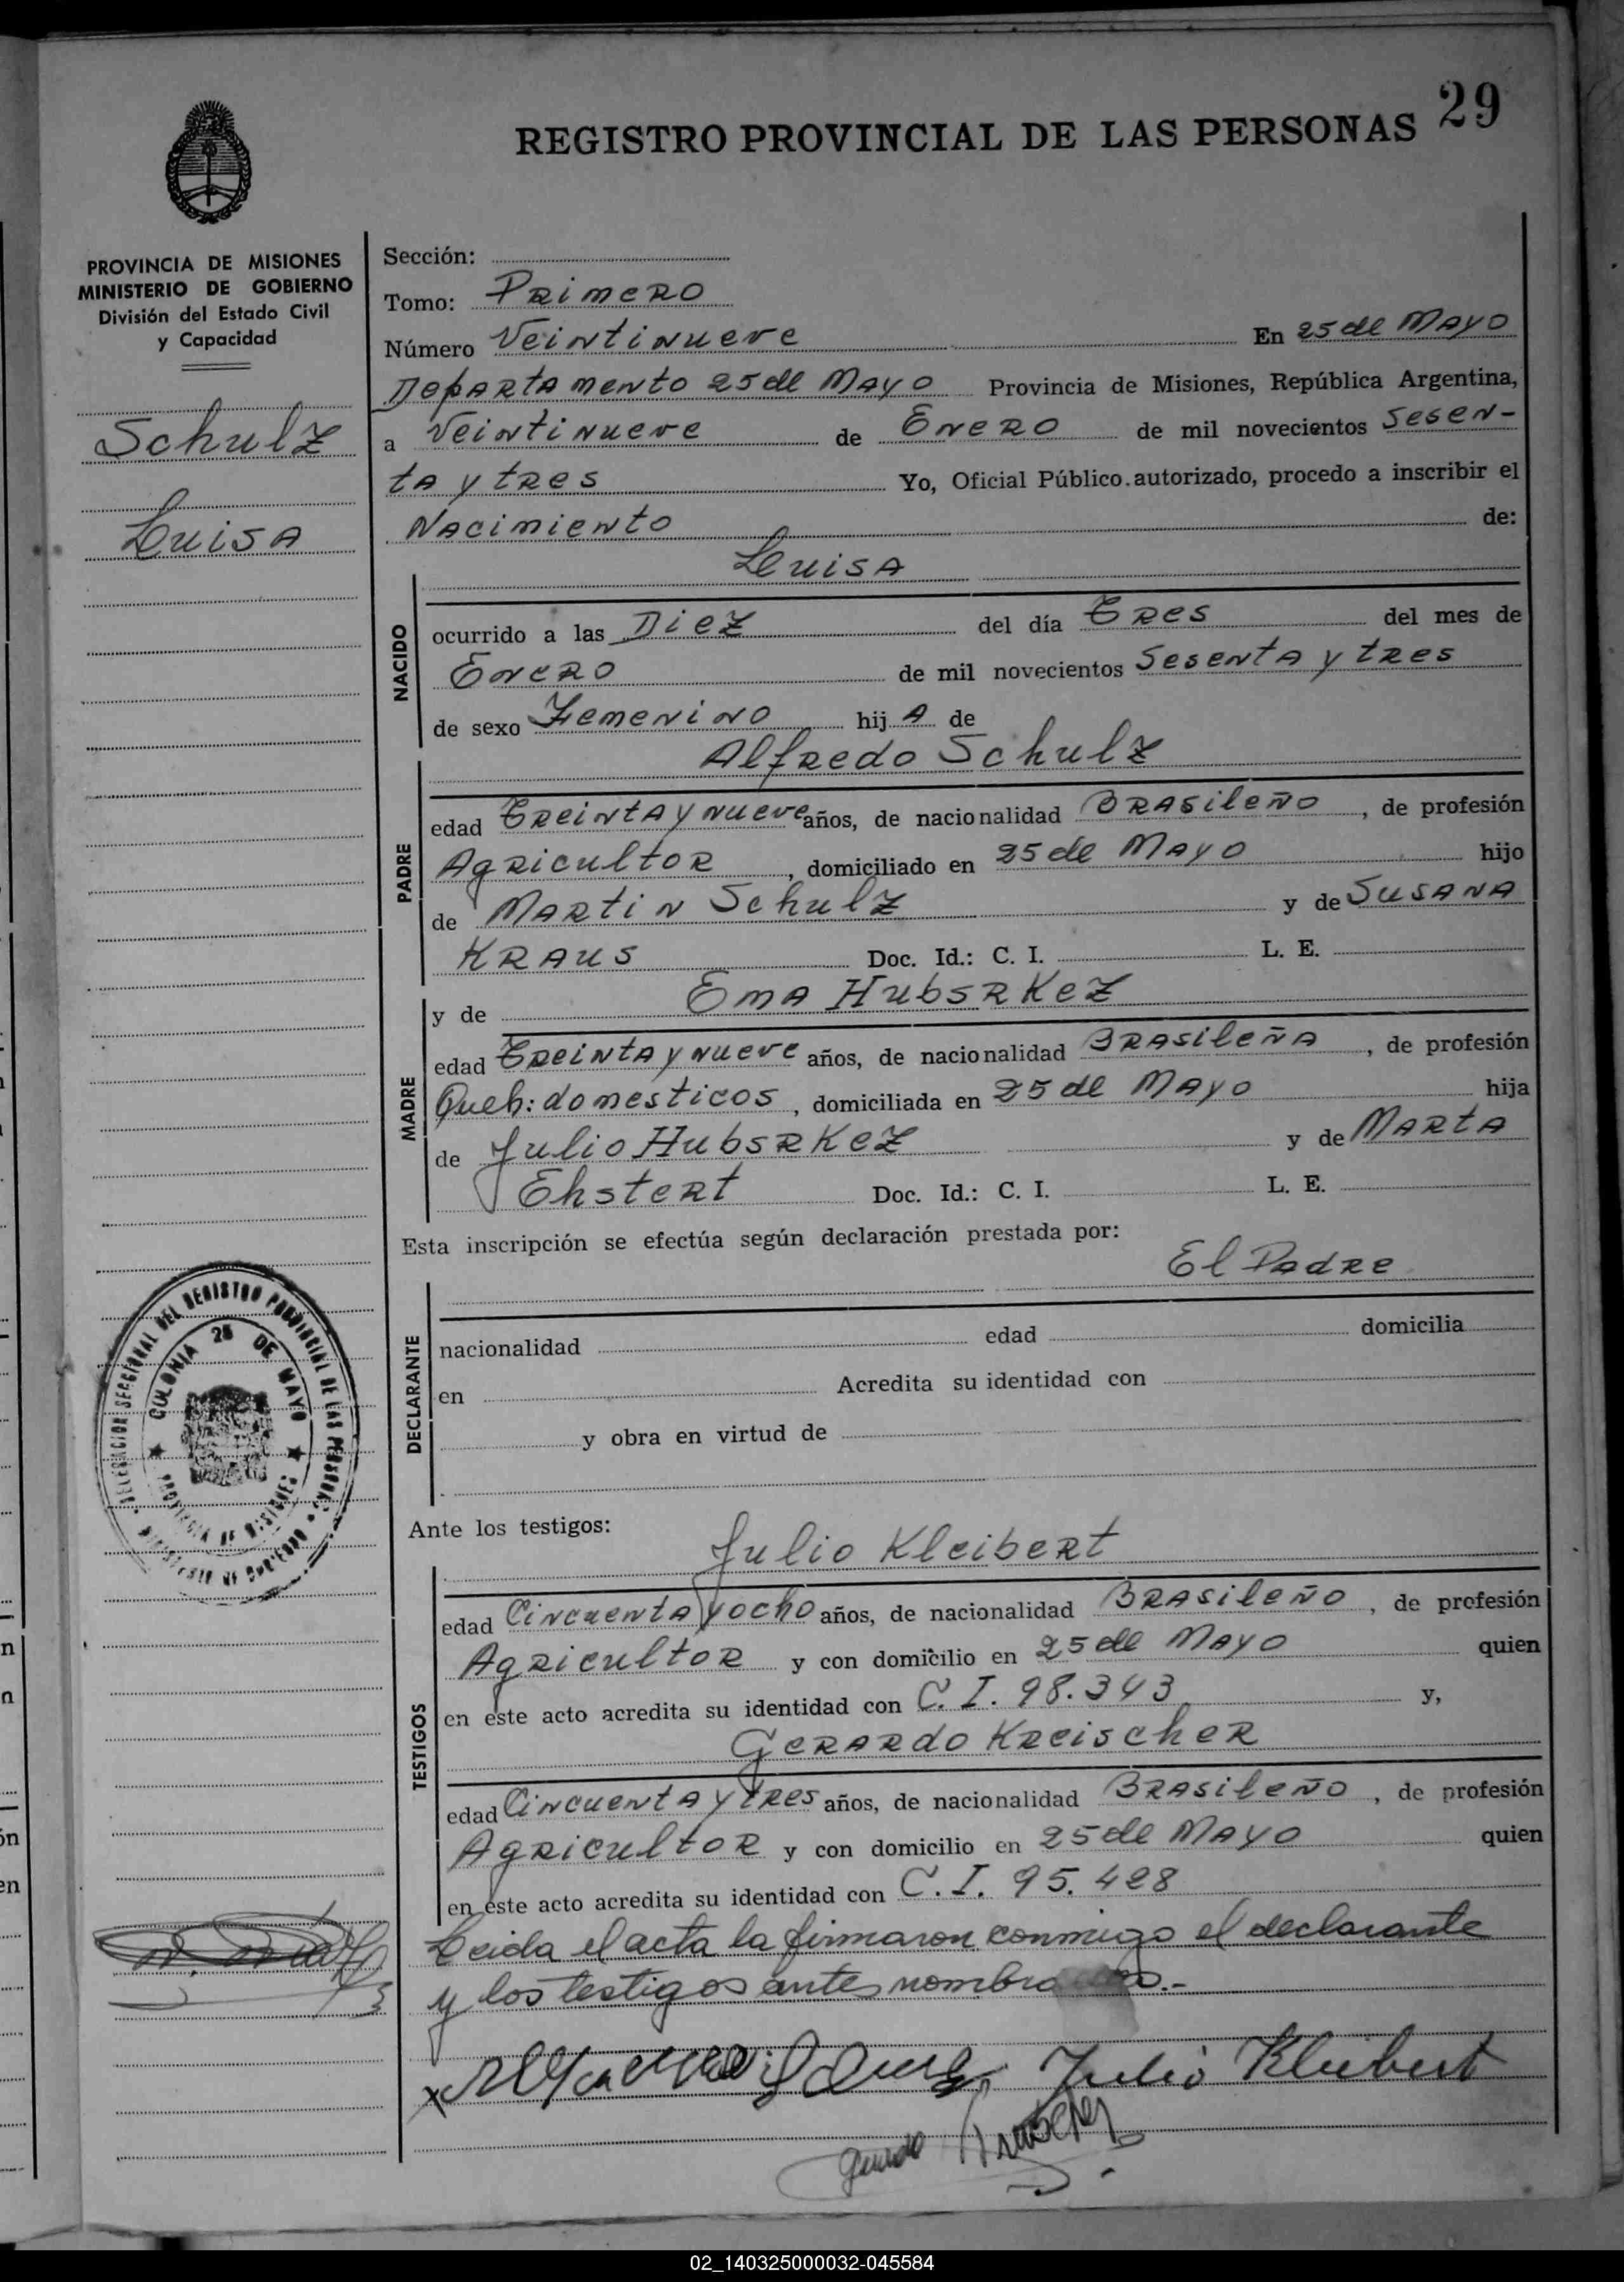 29
REGISTRO PROVINCIAL DE LAS PERSONAS
PROVINCIA DE MISIONES
MINISTERIO DE GOBIERNO
División del Estado Civil
y Capacidad
Schulz
Luisa
Sección:
Tomo: Primero
Número Veintinueve En 25 de Mayo
Departamento 25 de Mayo Provincia de Misiones, República Argentina,
a Veintinueve de Enero de mil novecientos Sesen-
ta y tres Yo, Oficial Público autorizado, procedo a inscribir el
Nacimiento de:
Luisa
NACIDO
ocurrido a las Diez del día Tres del mes de
Enero de mil novecientos Sesenta y tres
de sexo Femenino hij A de
Alfredo Schulz
PADRE
edad Treinta y nueve años, de nacionalidad Brasileño, de profesión
Agricultor, domiciliado en 25 de Mayo hijo
de Martin Schulz y de Susana
Kraus Doc. Id.: C. I. L. E.
y de Ema Hubsrkez
MADRE
edad Treinta y nueve años, de nacionalidad Brasileña, de profesión
Queh: domesticos, domiciliada en 25 de Mayo hija
de Julio Hubsrkez y de Marta
Ehstert Doc. Id.: C. I. L. E.
Esta inscripción se efectúa según declaración prestada por:
El Padre
DECLARANTE
nacionalidad edad domicilia
en Acredita su identidad con
y obra en virtud de
DELEGACION SECCIONAL DEL REGISTRO PROVINCIAL DE LAS PERSONAS
COLONIA 25 DE MAYO
PROVINCIA DE MISIONES
MINISTERIO DE GOBIERNO
Ante los testigos:
Julio Kleibert
TESTIGOS
edad Cincuenta y ocho años, de nacionalidad Brasileño, de profesión
Agricultor y con domicilio en 25 de Mayo quien
en este acto acredita su identidad con C. I. 98.343 y,
Gerardo Kreischer
edad Cincuenta y tres años, de nacionalidad Brasileño, de profesión
Agricultor y con domicilio en 25 de Mayo quien
en este acto acredita su identidad con C. I. 95.428
Leida el acta la firmaron conmigo el declarante
y los testigos antes nombrados.-
Julio Kleibert
02_140325000032-045584